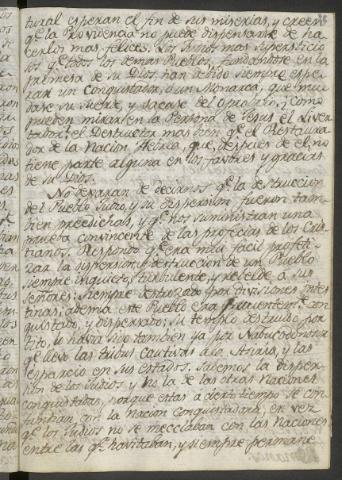 tural esperan el fin de sus miserias, y creen
qe la Providencia no puede dispensarse de ha-
cerlos mas felices. Los Judios mas supersticio-
sos qe todos los demas Pueblos, fundandose en la
promesa de su Dios, han devido siempre espe-
rar un Conquistador, o un Monarca, que mu-
dase su suerte, y sacase del Oprobrio; ¿Como
pueden mirar en la Persona de Jesus el Liver-
tador, el Destructor mas bien qe el Restaura-
dor de la Nacion Hebrea, que, despues de el, no
tiene parte alguna en los favores y gracias
de su Dios.
No dexaran de decirnos qe la destruccion
del Pueblo Judio, y su dispersion fueron tam-
bien predichas, y qe nos suministran una
prueva convincente de las profecias de los Cris-
tianos. Respondo qe era mui facil profeti-
zar la dispersion y destruccion de un Pueblo
siempre inquieto, turbulento, y rebelde a sus
Señores; siempre destrozado por divisiones intes-
tinas; ademas este Pueblo era frecuentemte con-
quistado, y dispersado; su templo destruido por
Tito, lo havia sido tambien ya por Nabucodonosor
qe llevo las tribus cautivas a la Asiria, y las
esparcio en sus estados. Sabemos la disper-
sion de los Judios y no la de las otras Naciones
conquistadas, porque estas a cierto tiempo se con-
fundian con la Nacion conquistadora, en vez
qe los Judios no se mezclaban con las Naciones
entre las qe havitaban, y siempre permane-